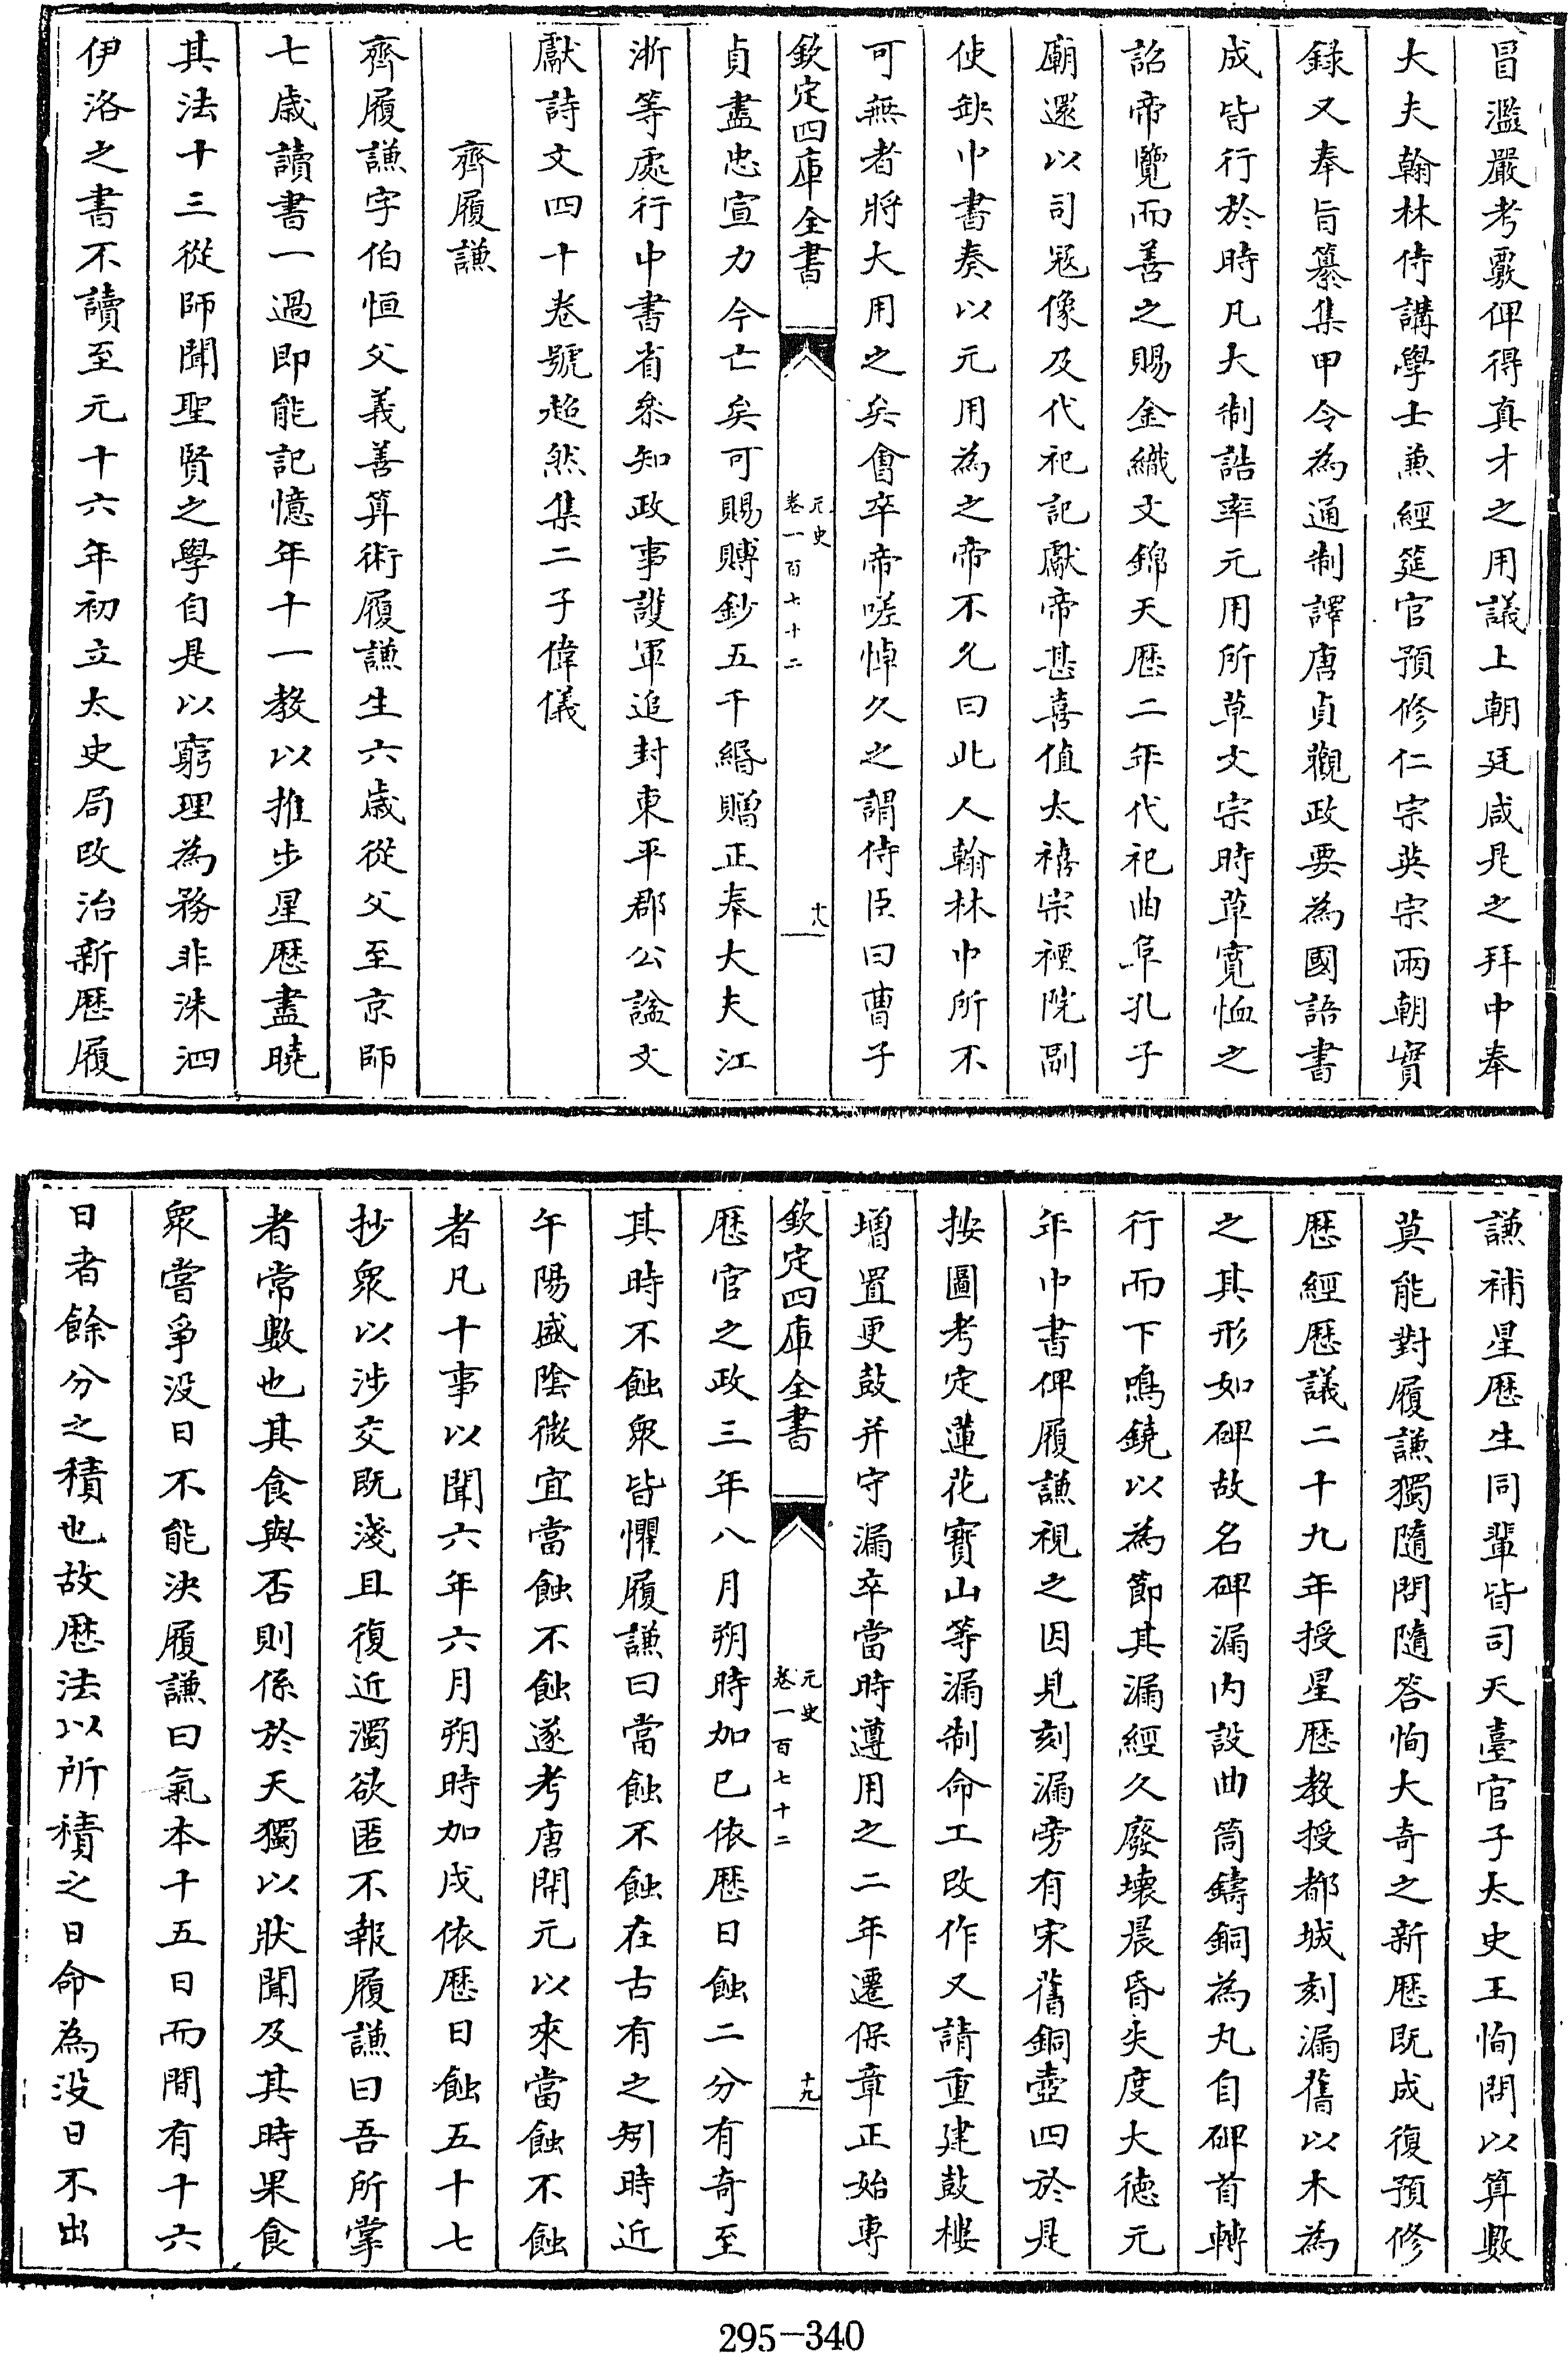 冒濫嚴考覈俾得真才之用議上朝廷咸是之拜中奉
大夫翰林侍講學士兼經筵官預修仁宗英宗兩朝實
録又奉旨纂集甲令為通制譯唐貞觀政要為國語書
成皆行於時凡大制誥率元用所草文宗時草寛恤之
詔帝覽而善之賜金織文錦天歴二年代祀曲阜孔子
廟還以司冦像及代祀記獻帝甚喜值太禧宗禋院副
使缺中書奏以元用為之帝不允曰此人翰林中所不
可無者將大用之矣會卒帝嗟悼久之謂侍臣曰曹子
欽定四庫全書
元史
卷一百七十二
十八
貞盡忠宣力今亡矣可賜賻鈔五千緡贈正奉大夫江
浙等處行中書省叅知政事護軍追封東平郡公諡文
獻詩文四十卷號超然集二子偉儀
齊履謙
齊履謙字伯恒父義善算術履謙生六歲從父至京師
七歲讀書一過即能記憶年十一教以推步星歴盡曉
其法十三從師聞聖賢之學自是以窮理為務非洙泗
伊洛之書不讀至元十六年初立太史局改治新歴履
謙補星歴生同輩皆司天臺官子太史王恂問以算數
莫能對履謙獨隨問隨答恂大奇之新歴既成復預修
歴經歴議二十九年授星歴教授都城刻漏舊以木為
之其形如碑故名碑漏内設曲筒鑄銅為丸自碑首轉
行而下鳴鐃以為節其漏經久廢壞晨昏失度大徳元
年中書俾履謙視之因見刻漏旁有宋舊銅壺四於是
按圖考定蓮花寳山等漏制命工改作又請重建鼓樓
增置更鼓并守漏卒當時遵用之二年遷保章正始専
欽定四庫全書
元史
卷一百七十二
十九
歴官之政三年八月朔時加巳依歴日蝕二分有奇至
其時不蝕衆皆懼履謙曰當蝕不蝕在古有之矧時近
午陽盛陰微宜當蝕不蝕遂考唐開元以來當蝕不蝕
者凡十事以聞六年六月朔時加戌依歴日蝕五十七
抄衆以涉交既淺且復近濁欲匿不報履謙曰吾所掌
者常數也其食與否則係於天獨以狀聞及其時果食
衆嘗爭沒日不能決履謙曰氣本十五日而間有十六
日者餘分之積也故歴法以所積之日命為沒日不出
295-340